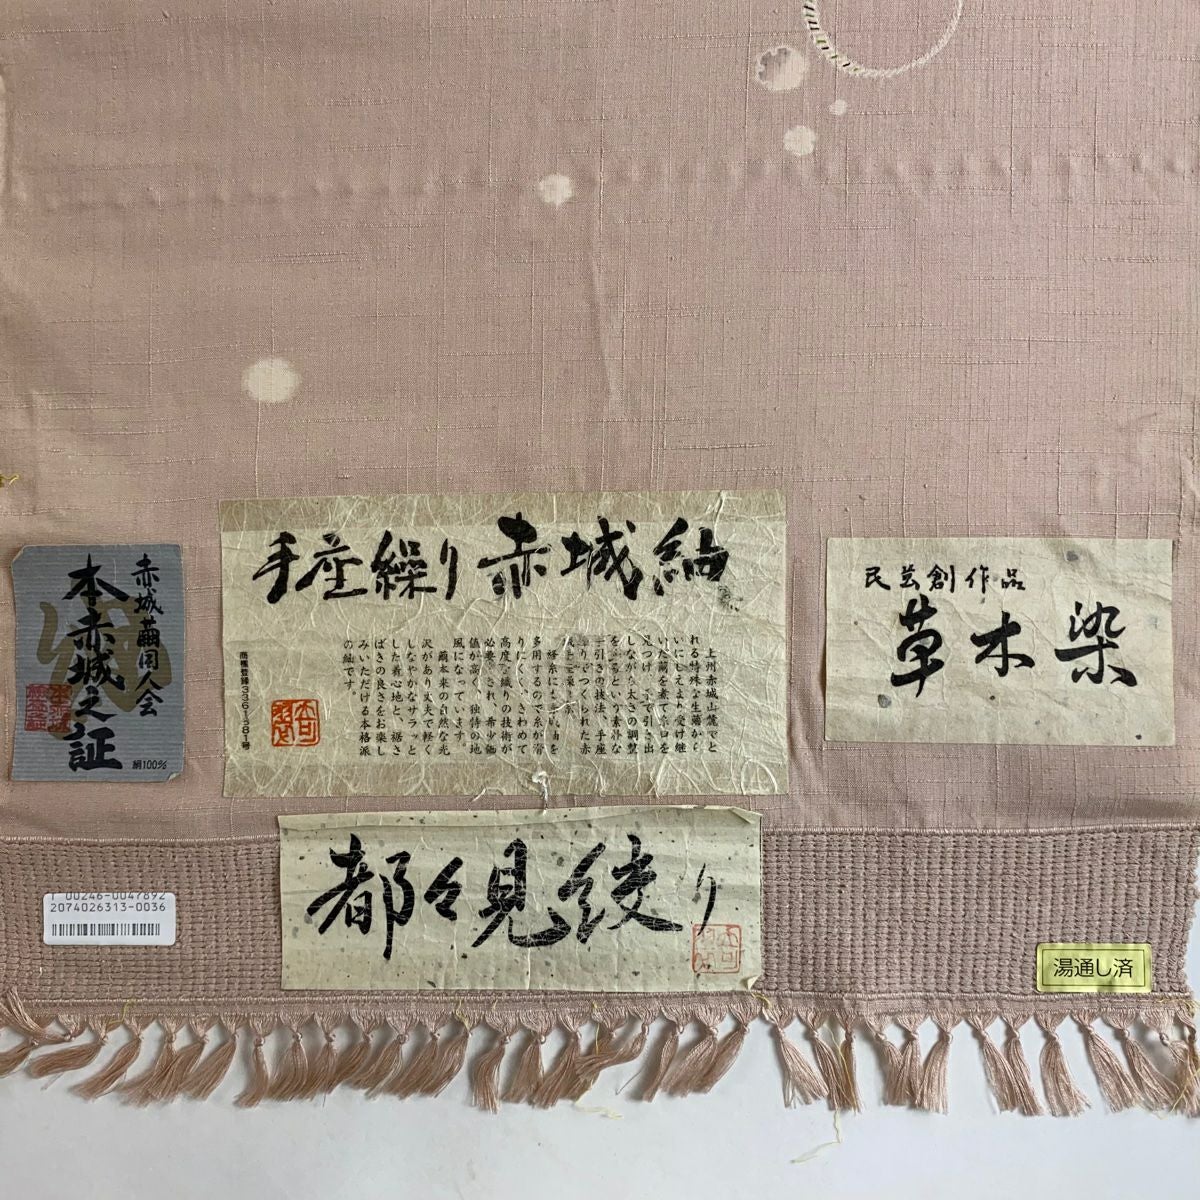 手座繰り赤城紬
上州赤城山麓でと
れる特殊な生繭から
いにしえより受け継
いだ繭を煮て糸口を
見つけ、手で引き出
しながら太さの調整
をするという素朴な
手引きの技法、手座
繰りでつくられた赤
城玉で織りました。
経糸にも玉紬を
多用するので糸が滑
りにくく、きわめて
高度な織りの技術が
必要とされ、希少価
値が高く、独特の地
風になっています。
繭本来の自然な光
沢があり丈夫で軽く
しなやかなサラッと
した着心地と、裾さ
ばきの良さをお楽し
みいただける本格派
の紬です。
商標登録3361581号
赤城繭同人会
本赤城之証
絹100%
民芸創作品
草木染
都々見絞り
00246-0047892
2074026313-0036
湯通し済